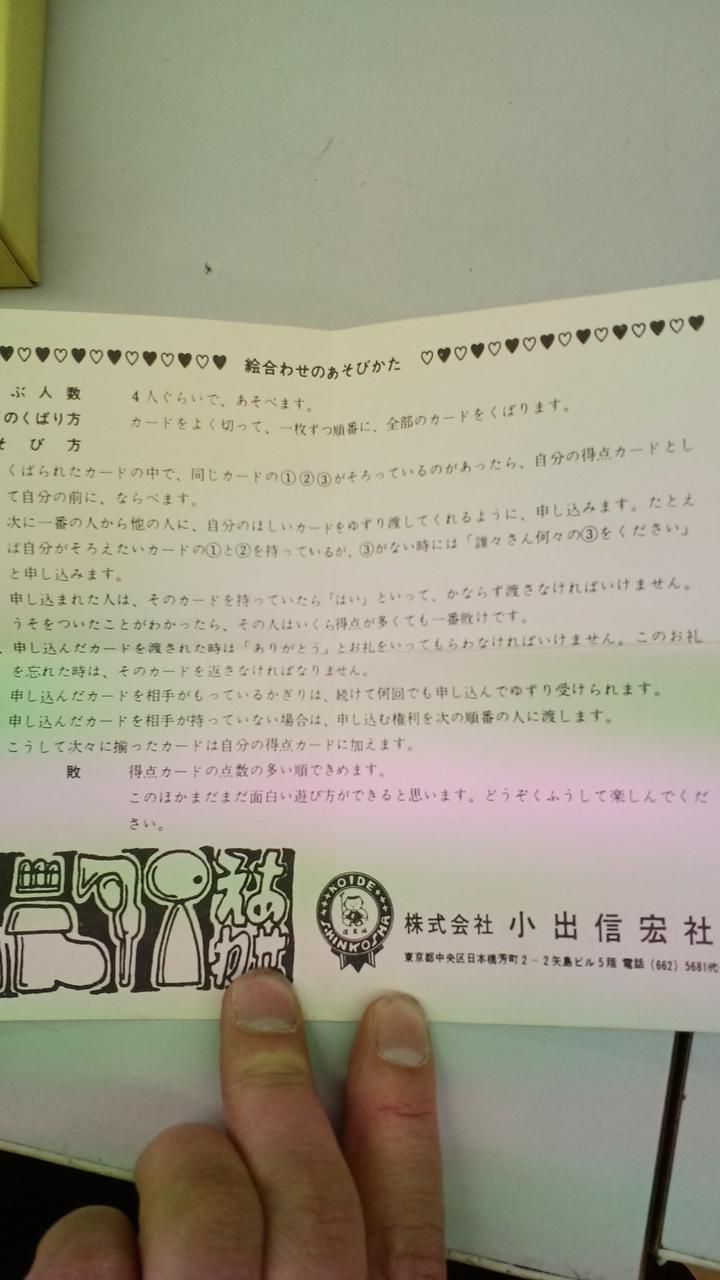 絵合わせのあそびかた
ぶ人数 4人ぐらいで、あそべます。
のくばり方 カードをよく切って、一枚ずつ順番に、全部のカードをくばります。
そび方
くばられたカードの中で、同じカードの①②③がそろっているのがあったら、自分の得点カードとし
て自分の前に、ならべます。
次に一番の人から他の人に、自分のほしいカードをゆずり渡してくれるように、申し込みます。たとえ
ば自分がそろえたいカードの①と②を持っているが、③がない時には「誰々さん何々の③をください」
と申し込みます。
申し込まれた人は、そのカードを持っていたら「はい」といって、かならず渡さなければいけません。
うそをついたことがわかったら、その人はいくら得点が多くても一番敗けです。
申し込んだカードを渡された時は「ありがとう」とお礼をいってもらわなければいけません。このお礼
を忘れた時は、そのカードを返さなければなりません。
申し込んだカードを相手がもっているかぎりは、続けて何回でも申し込んでゆずり受けられます。
申し込んだカードを相手が持っていない場合は、申し込む権利を次の順番の人に渡します。
こうして次々に揃ったカードは自分の得点カードに加えます。
敗 得点カードの点数の多い順できめます。
このほかまだまだ面白い遊び方ができると思います。どうぞくふうして楽しんでくだ
さい。
えあ
わせ
KOIDE
SHINKOSHA
株式会社 小出信宏社
東京都中央区日本橋芳町2-2矢島ビル5階 電話(662)5681代